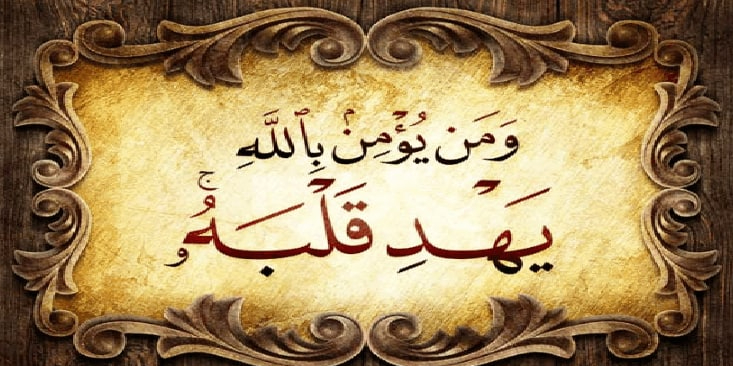 وَمَن يُؤْمِنۢ بِٱللَّهِ
يَهْدِ قَلْبَهُۥ ۚ